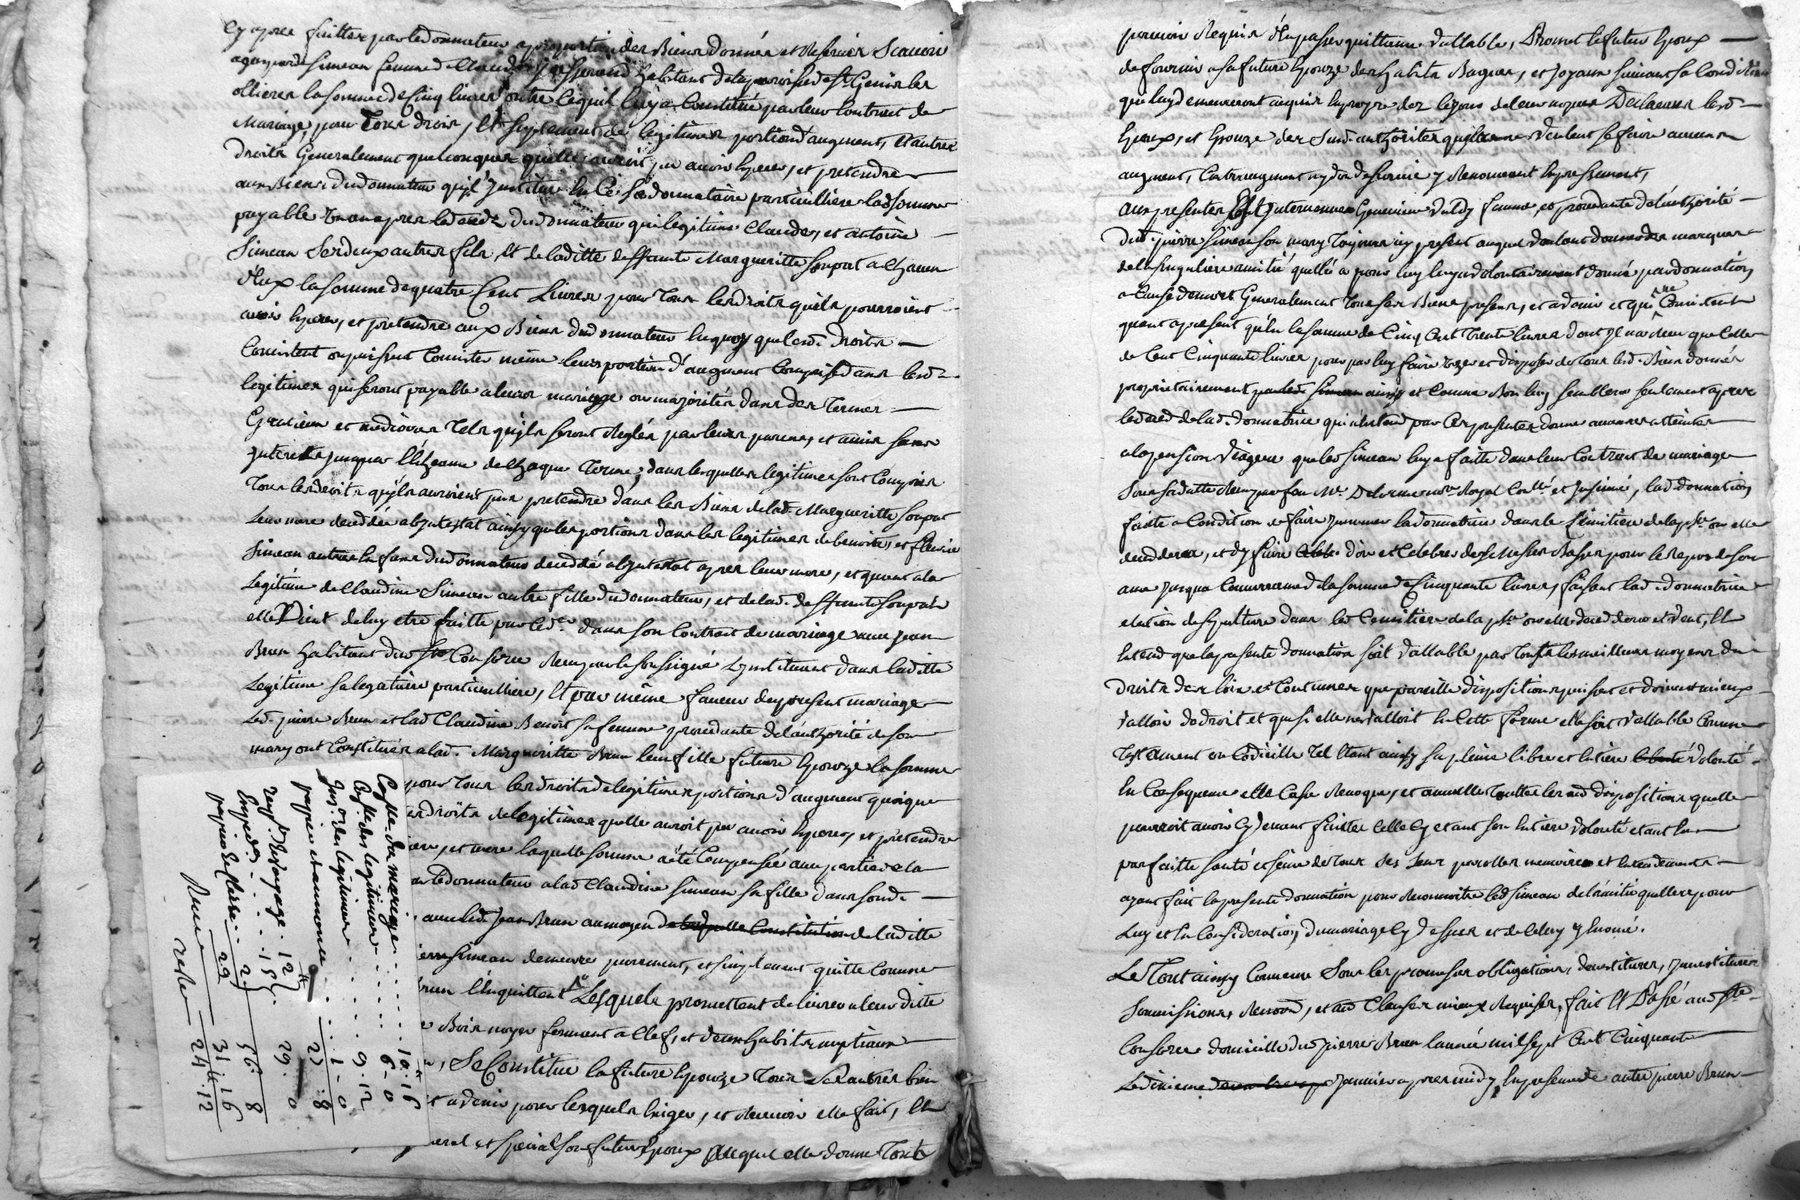 cy apres faittes par le donnateur a proportion des Biens donnés et Reservés Scavoir
Simean femme de Claude habitant de la paroisse de St Genis les
ollieres la somme de Cinq livres outre ce quil luy a Constitué par leur Contract de
Mariage pour Tous droits, et suplement de legitimes portion d'augment, et autres
droits Generalement quelconques quelle auroit pu avoir esperer, et pretendre
aux Biens dudonnateur qu'il Institue en Ce sa donnataire particulliere lad somme
payable Un an apres le deces dudonnateur qui legitime Claude, et antoine
Simean Ses deux autres fils, et de laditte deffunte Margueritte Soupat a Chacun
d'Eux la somme de quatre Cent Livres pour Tous les droits quils pourroient
avoir esperer, et pretendre aux Biens dudonnateur en quoy que lesd. droits
Consistent ou puissent Consister même leurs portions d'augment Comprises dans lesd
legitimes qui seront payable a leurs mariage ou majorités dans des Termes
Gratieux et mediocres Tels qu'ils seront Reglés par leurs parens, et amis sans
Interets jusques a l'Echeance de Chaque Terme, dans lesquelles legitimes sont Compris
Tous les droits qu'ils auroient pu pretendre dans les Biens delad. Margueritte Soupat
Leur mere decedée abintestat ainsy que les portions dans les legitimes de benoitte, et
Simean autres enfans dudonnateur decedés abintestat apres leur mere, et quant ala
Legitime de Claudine Simean autre fille dudonnateur, et delad. deffunte Soupat
elle Vient de luy etre faitte par led. dans son Contract de mariage avec Jean
Brun habitant dud Consorce Reçu par le soussigné L'instituant dans laditte
Legitime sa legataire particulliere, Et par même faveur du present mariage
Led. pierre Brun et lad Claudine Benoit sa femme procedante de l'authorité de son
mary ont Constitués a lad. Margueritte Brun leur fille future Epouze la somme
pour Tous les droits de legitimes portions d'augment quoique
droits de legitimes quelle auroit pu avoir esperer, et pretendre
et mere laquelle somme a été Compensée avec partie de la
ledonnateur a lad Claudine Simean sa fille dans sond.
avec led. Jean Brun au moyen de laquelle Constitution de laditte
Simean demeure purement, et simplement quitte Comme
Brun l'En quittant Lesquels promettent de livrer a leur ditte
Bois noyer fermant a Clef, et deux habits nuptiaux
Se Constitue la future Epouze Tous Ses autres biens
a venir pour lesquels Exiger, et Recevoir elle fait, Et
et special son futur Epoux auquel elle donne Tout
Coffre du mariage . . . . 10#-16
Coffre des legitimes . . . 6-0
. . . . 9-12
Ins. des legitimes . . . 1-0
papier et annonce . . 27:8
29-0
12#
15
2
29
56-8
31-16
24#-12
Reçu
reste
pouvoir Requis d'En passer quittance Vallable, Promet le futur Epoux
de fournir a sa future Epouze des habits Bagues, et Joyaux suivant sa Condition
que luy demeureront acquis en propre des le jour de leurs nopces Declarant lesd
Epoux, et Epouze des Susd. authorités qu'els ne Veulent se faire aucun
augment, Contreaugment ny don de survie y Renonceant Expressement,
Aux presentes Est Intervenue Geneviere femme, et procedante de l'authorité
dud. pierre Simean son mary Toujours icy present auquel Voulant donner des marques
de la singuliere amitié quelle a pour luy luy a Volontairement donné par donnation
a Cause de mort Generalement Tous ses Biens presens, et avenir et qui ne Consistent
quant apresent qu'En la somme de Cinq Cent Trente livres dont Il n'a reçu que Celle
de Cent Cinquante livres pour par luy faire Uzer et disposer de Tous lesd. Biens donnés
proprietairement par led. Simean ainsy et Comme Bon luy semblera seulement apres
le deces de lad. donnatrice qui n'Entend par Ces presentes donner aucune atteinte
a la pension Viagere que led Simean luy a faitte dans leur Contract de mariage
Sous sa datte Reçu par feu Me. Delorme nore Royal Collle et Insinué, lad. donnation
faite a Condition de faire Inhumer la donnatrice dans le Cimitiere de la pse. ou elle
decedera, et d'y faire dire et Celebrer des Messes Basses pour le Repos de son
ame Jusqu'a Concurrence de la somme de Cinquante livres, faisant lad. donnatrice
election de sepulture dans led Cimitiere de la pse. ou elle decedera et Veut, Et
Entend que la presente donnation soit Vallable par Touts les meilleurs moyens de
droits des loix et Coutumes que pareilles dispositions puissent et doivent mieux
Valloir de droit et que si elle ne Valloit En Cette forme elle soit Vallable Comme
Testament ou Codicille Tel Etant ainsy sa pleine libre et Entiere liberté Volonté
En Consequence elle Casse Revoque, et annulle Touttes les autres dispositions quelle
pourroit avoir Cy devant faittes Celle Cy etant son Entiere Volonté etant En
parfaitte santé et saine de Tous Ses sens parolles memoires et Entendement
ayant fait la presente donnation pour Reconnoitre led Simean de l'amitié quelle a pour
Luy et En Consideration, du mariage Cy dessus et de Celuy y Enoncé.
Le Tout ainsy Convenu Sous les promesses obligations, devestitures, Investitures
Soumissions, Renons, et au Clauses mieux Requises, fait Et Passé aud
Consorce domicille dud pierre Brun l'année mil sept Cent Cinquante
Le dixieme Janvier apres midy, En presence de autre pierre Brun